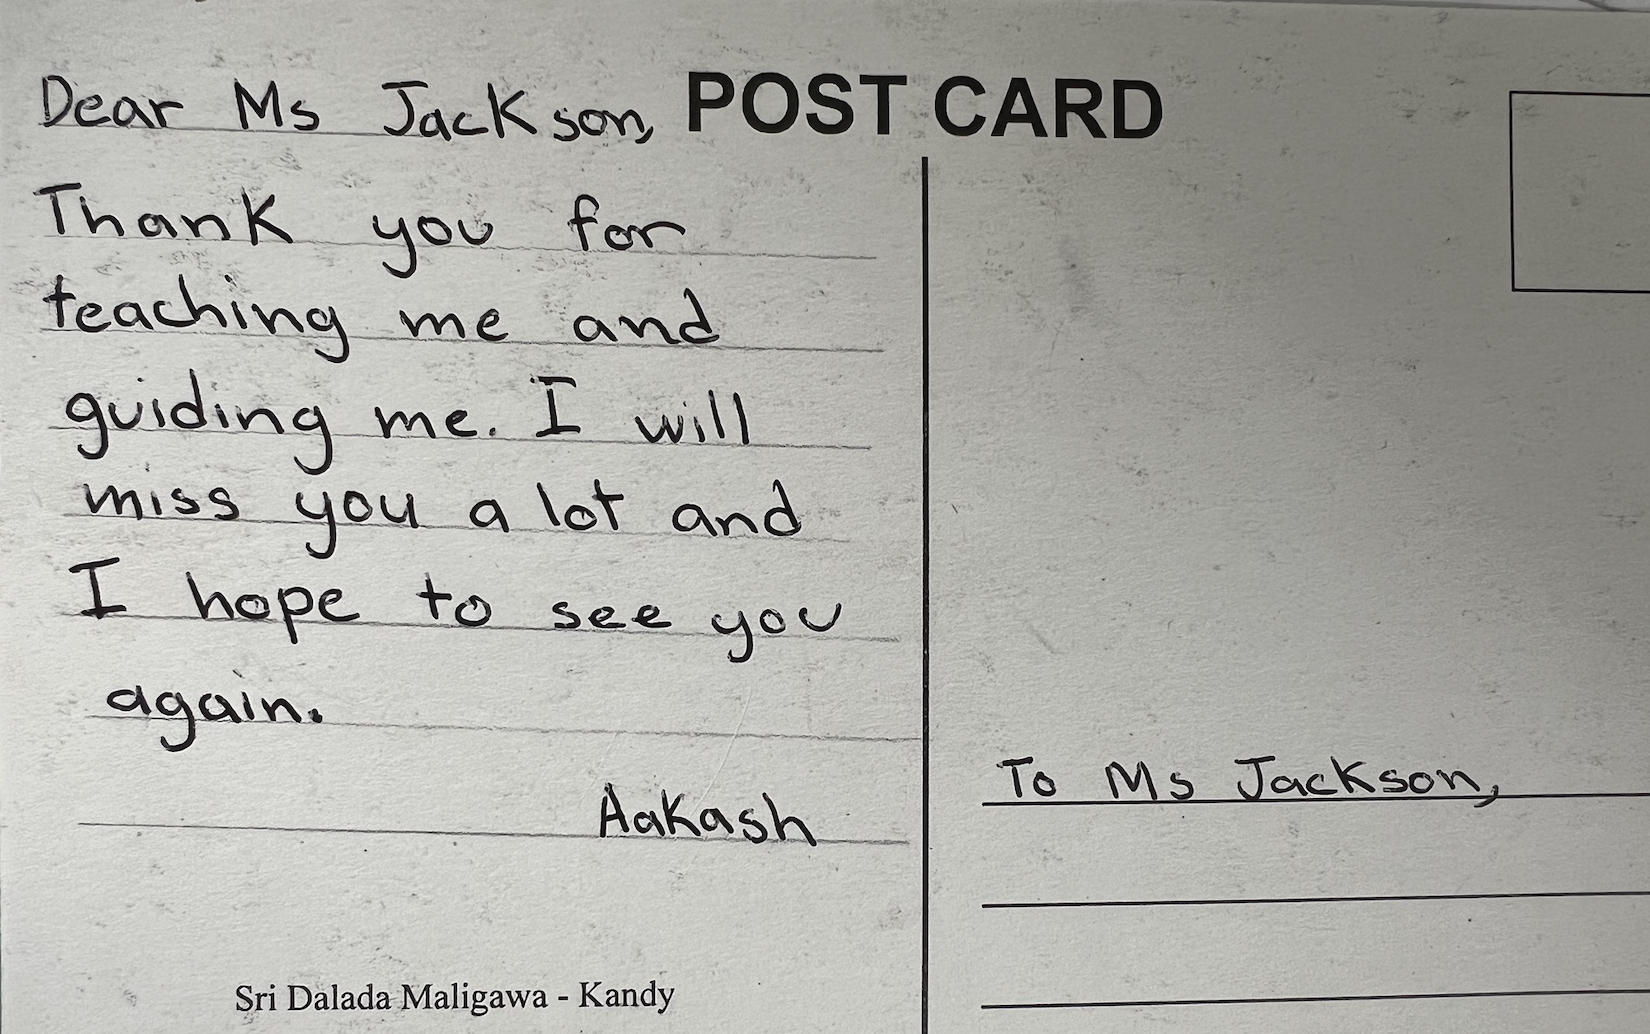 Dear Ms Jackson,
POST CARD
Thank you for
teaching me and
guiding me. I will
miss you a lot and
I hope to see you
again.
Aakash
Sri Dalada Maligawa - Kandy
To Ms Jackson,